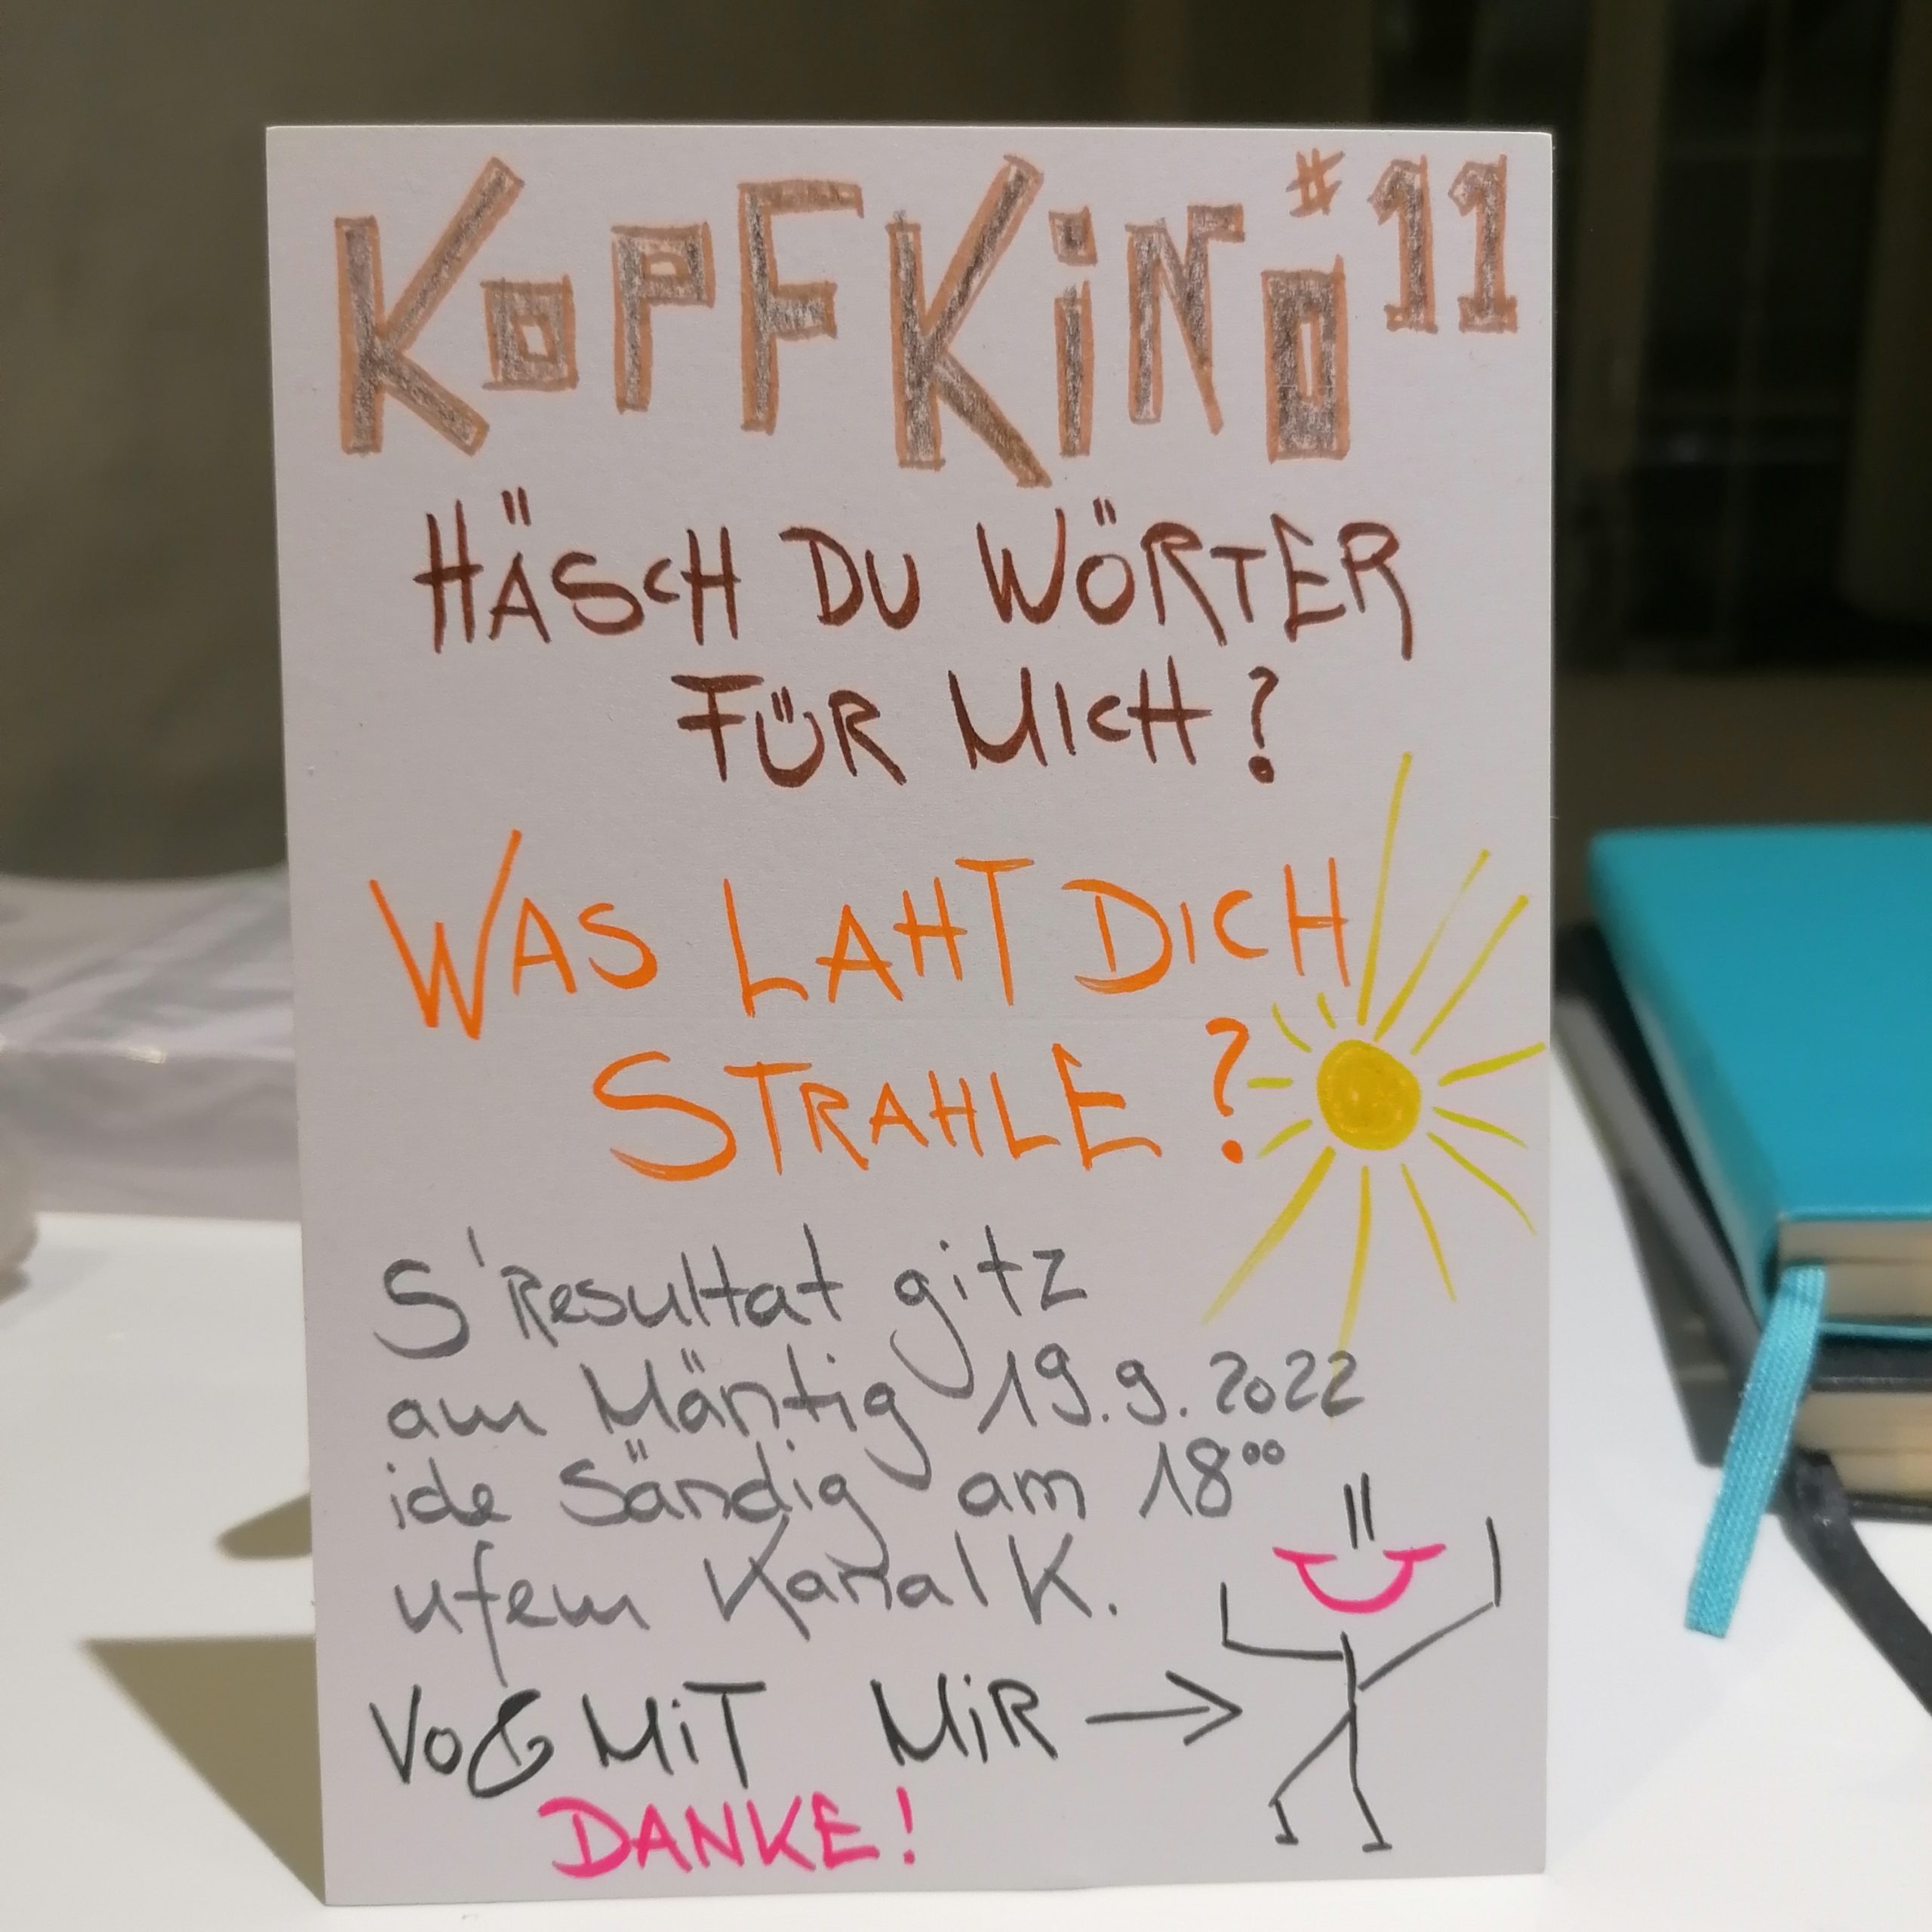 KOPFKINO #11
HÄSCH DU WÖRTER
FÜR MICH?
WAS LAHT DICH
STRAHLE?
S'Resultat gitz
am Mäntig 19.9.2022
ide Sändig am 18⁰⁰
ufem Kanal K.
MIT MIR →
DANKE!